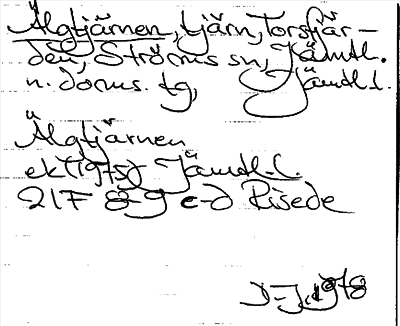 Älgtjärnen, tjärn, Torsfjär-
den, Ströms sn, Jämtl.
n. doms. tg, Jämtl. l.
Älgtjärnen
ek (1975) Jämtl. l.
21F 8-9 c-d Risede
1978